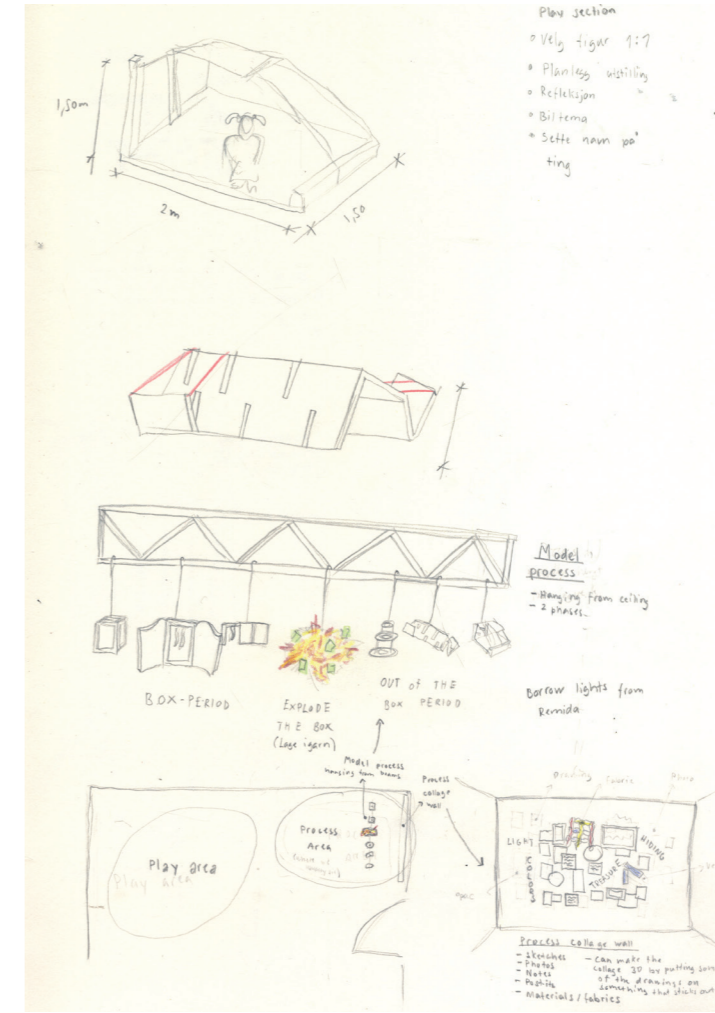 Play section
Velg figur 1:1
Planløs utstilling
Refleksjon
Biltema
Sette navn på
ting
1,50m
2m
1,50
Model
process
- Hanging from ceiling
- 2 phases
BOX-PERIOD
EXPLODE
THE BOX
(Lage igjen)
OUT of THE
BOX PERIOD
Borrow lights from
Remida
Model process
hanging from beams
Process
collage
wall
Process
Area
Play area
Play area
Drawing
Fabric
Photo
LIGHT
COLORS
HIDING
TREASURE
Process collage wall
- Sketches
- Photos
- Notes
- Post-its
- Materials/fabrics
- Can make the
collage 3D by putting som
of the drawings on
something that sticks out